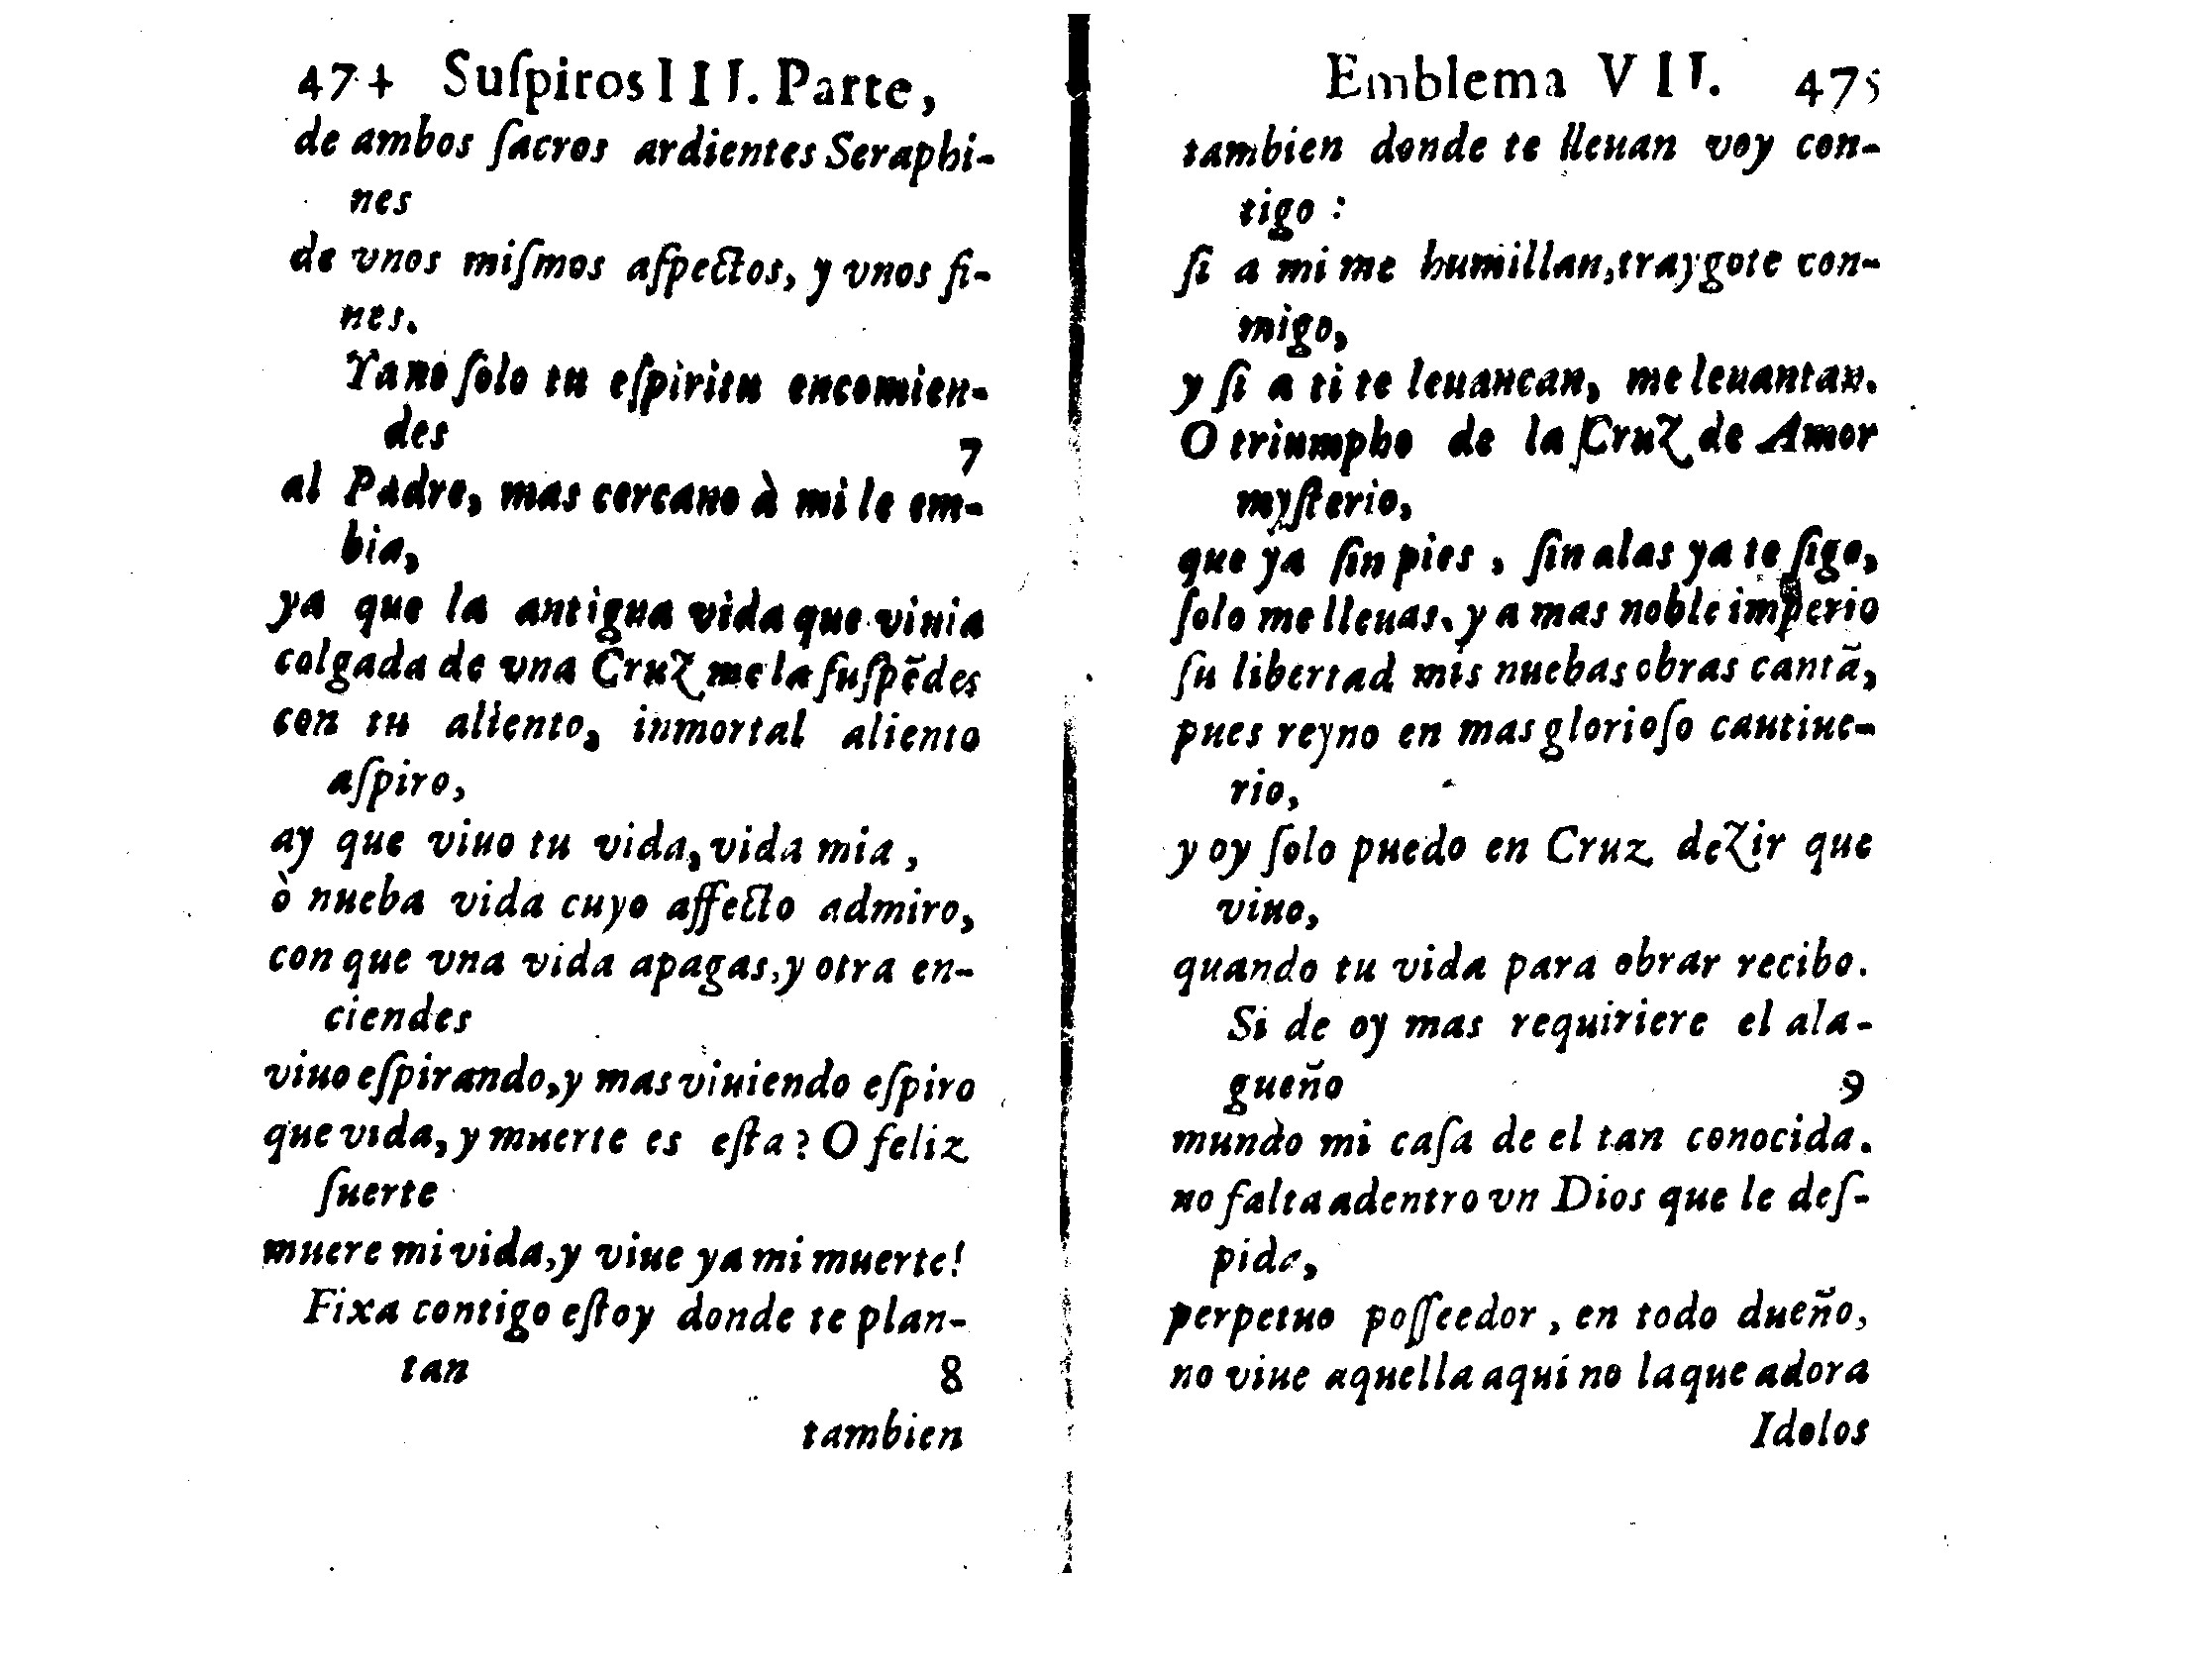 474 Suſpiros III. Parte,
de ambos ſacros ardientes Seraphi-
nes
de vnos miſmos aſpectos, y vnos fi-
nes.
Ya no ſolo tu eſpiritu encomien-
des 7
al Padre, mas cercano à mi le em-
bia,
ya que la antigua vida que viuia
colgada de vna Cruz me la ſuſpẽdes
con tu aliento, inmortal aliento
aſpiro,
ay que viuo tu vida, vida mia,
ò nueba vida cuyo affecto admiro,
con que vna vida apagas, y otra en-
ciendes
viuo eſpirando, y mas viuiendo eſpiro
que vida, y muerte es eſta? O feliz
ſuerte
muere mi vida, y viue ya mi muerte!
Fixa contigo eſtoy donde te plan-
tan 8
tambien
Emblema VII. 475
tambien donde te lleuan voy con-
tigo:
ſi a mi me humillan, traygote con-
migo,
y ſi a ti te leuancan, me leuantan.
O triumpho de la Cruz de Amor
myſterio,
que ya ſin pies, ſin alas ya te ſigo,
ſolo me lleuas, y a mas noble imperio
ſu libertad mis nuebas obras cantã,
pues reyno en mas glorioſo cautiue-
rio,
y oy ſolo puedo en Cruz dezir que
viuo,
quando tu vida para obrar recibo.
Si de oy mas requiriere el ala-
gueño 9
mundo mi caſa de el tan conocida.
no falta adentro vn Dios que le deſ-
pida,
perpetuo poſſeedor, en todo dueño,
no viue aquella aqui no la que adora
Idolos